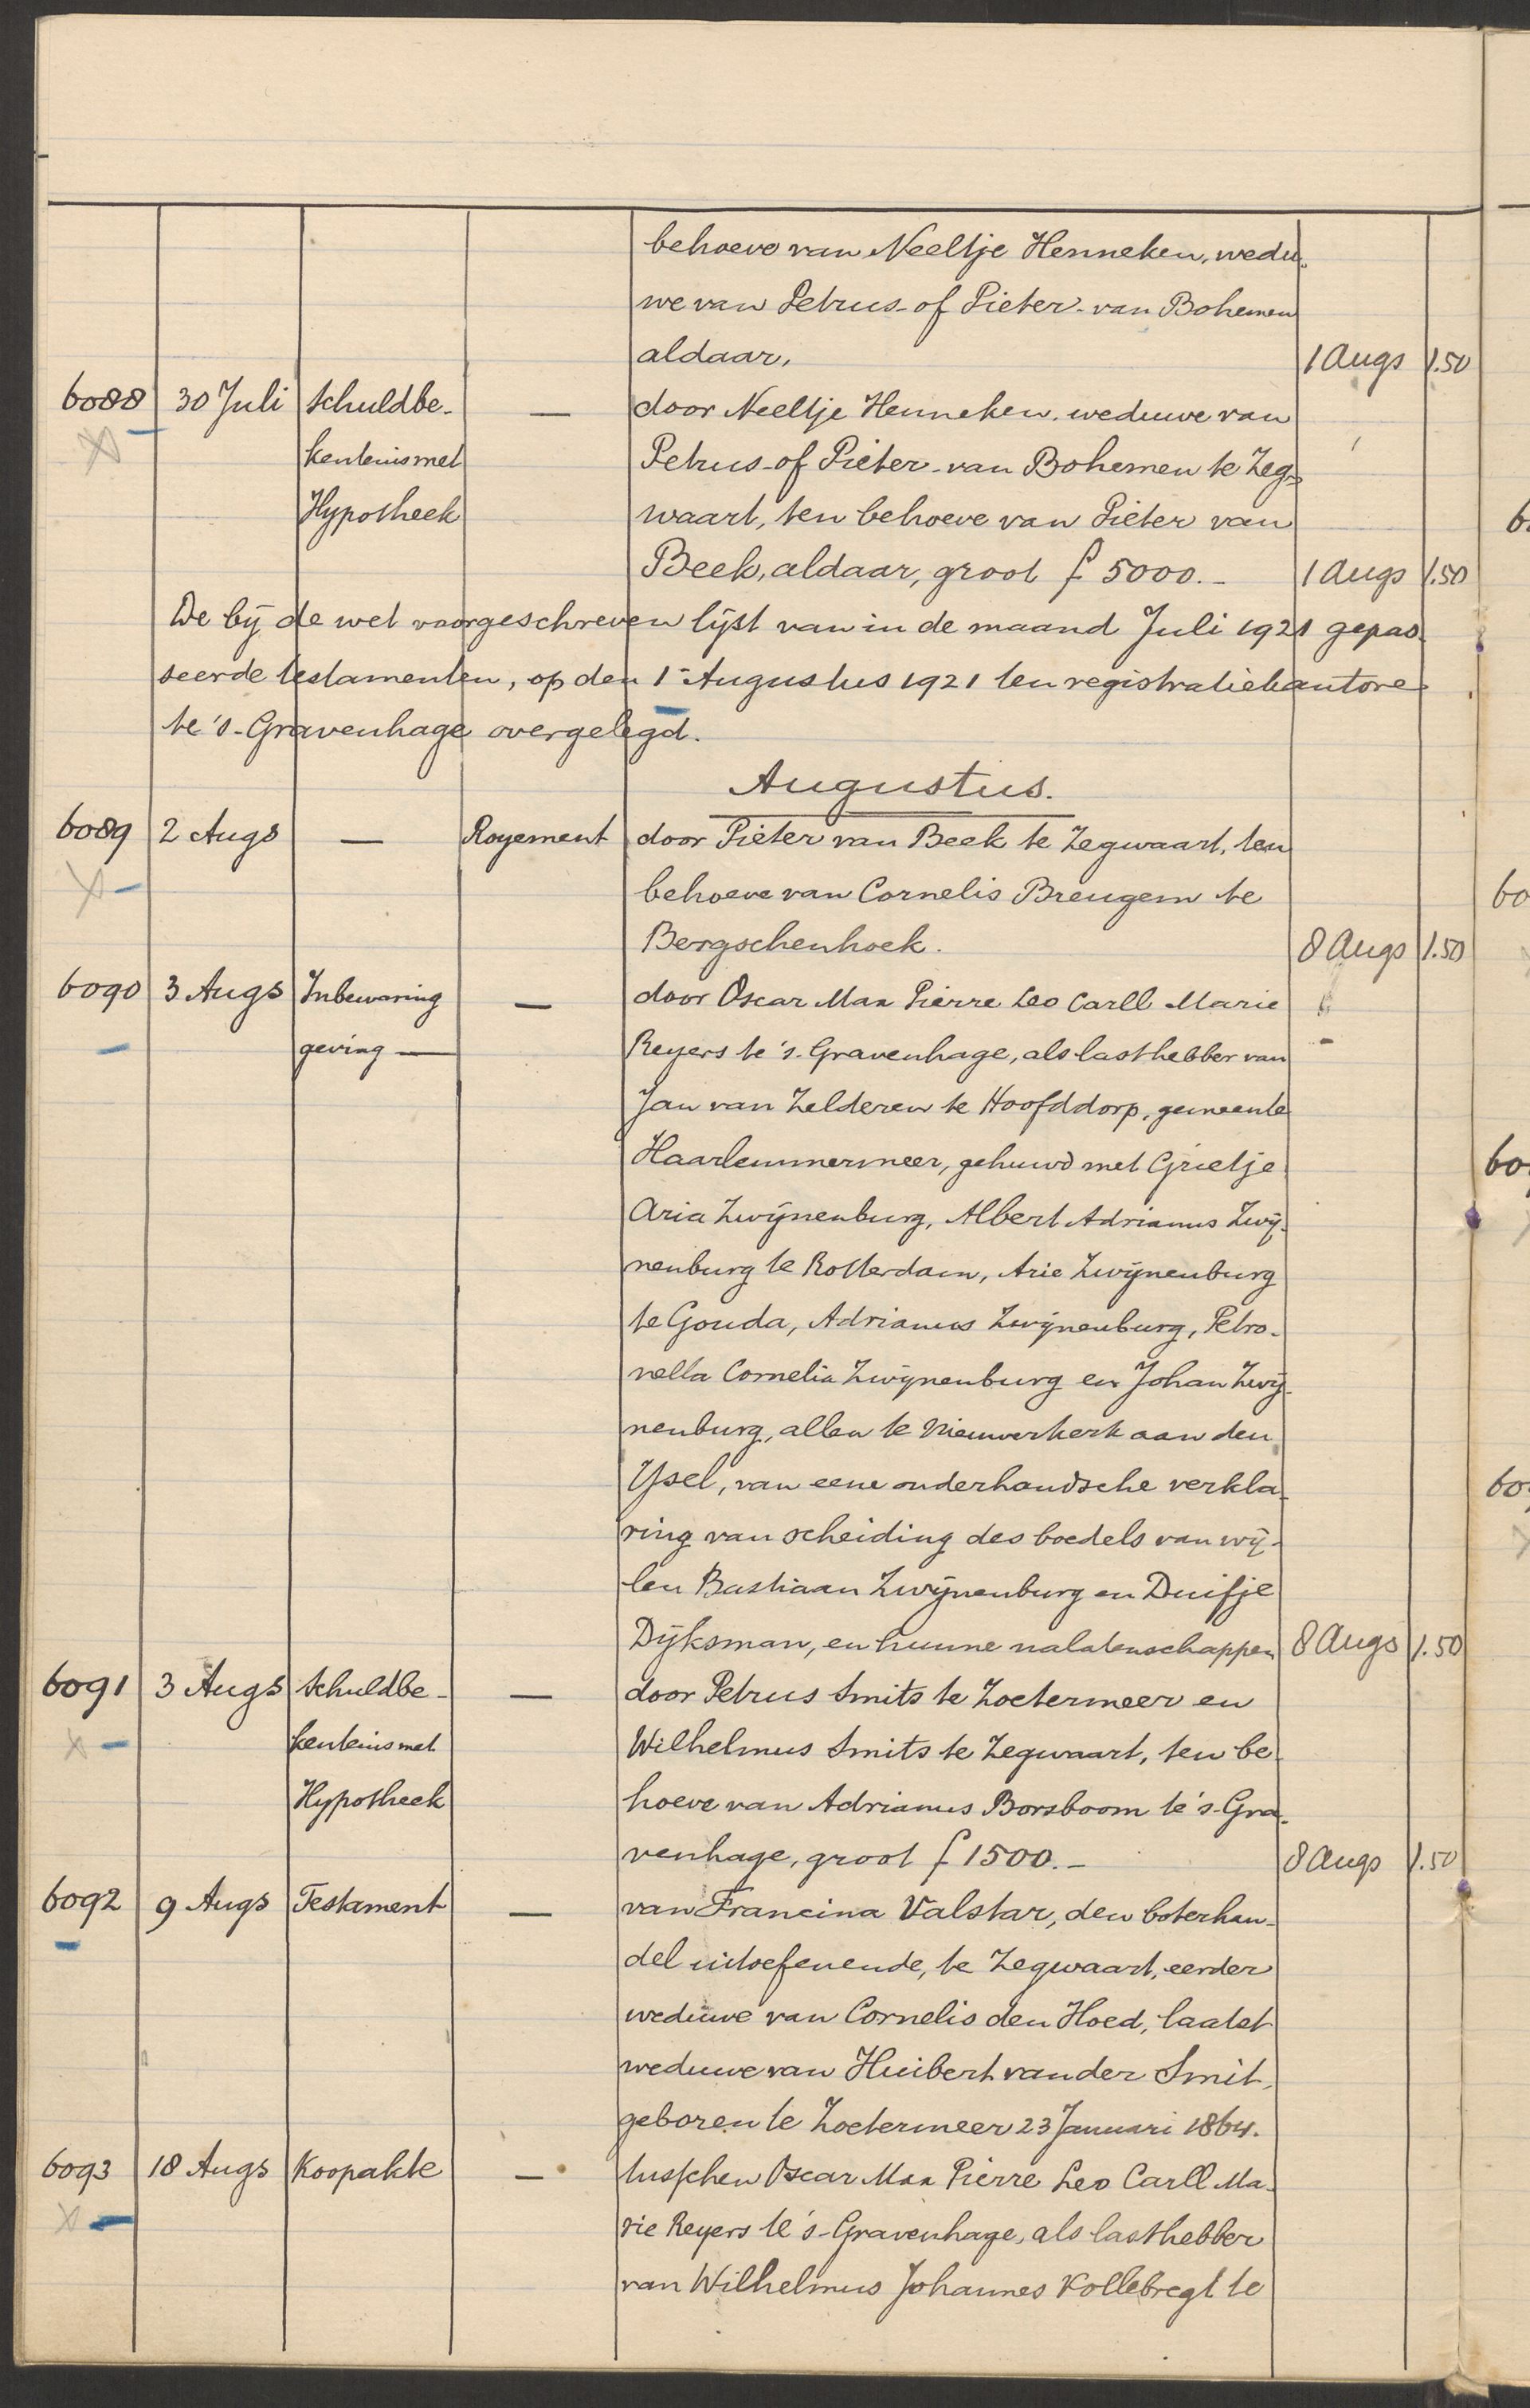 behoeve van Neeltje Henneken, wedu-
we van Petrus - of Pieter - van Bohemen
aldaar, 1 Augs 1.50
6088 30 Juli Schuldbe- — door Neeltje Henneken, weduwe van
kentenis met Petrus - of Pieter - van Bohemen te Zeg-
Hypotheek waart, ten behoeve van Pieter van
Beek, aldaar, groot f 5000.- 1 Augs 1.50
De bij de wet voorgeschreven lijst van in de maand Juli 1921 gepas-
seerde testamenten, op den 1 Augustus 1921 ten registratiekantore
te 's-Gravenhage overgelegd.
Augustus.
6089 2 Augs — Royement door Pieter van Beek te Zegwaart, ten
behoeve van Cornelis Breugem te
Bergschenhoek. 8 Augs 1.50
6090 3 Augs Inbewaring — door Oscar Max Pierre Leo Carll Marie
geving — Reyers te 's-Gravenhage, als lasthebber van
Jan van Zelderen te Hoofddorp, gemeente
Haarlemmermeer, gehuwd met Grietje
Aria Zwijnenburg, Albert Adrianus Zwij-
nenburg te Rotterdam, Arie Zwijnenburg
te Gouda, Adrianus Zwijnenburg, Petro-
nella Cornelia Zwijnenburg en Johan Zwij-
nenburg, allen te Nieuwerkerk aan den
IJsel, van eene onderhandsche verkla-
ring van scheiding des boedels van wij-
len Bastiaan Zwijnenburg en Duifje
Dijksman, en hunne nalatenschappen 8 Augs 1.50
6091 3 Augs Schuldbe- — door Petrus Smits te Zoetermeer en
kentenis met Wilhelmus Smits te Zegwaart, ten be-
Hypotheek hoeve van Adrianus Borsboom te 's-Gra-
venhage, groot f 1500.- 8 Augs 1.50
6092 9 Augs Testament — van Francina Valstar, den boterhan-
del uitoefenende, te Zegwaart, eerder
weduwe van Cornelis den Hoed, laatst
weduwe van Huibert van der Smit,
geboren te Zoetermeer 23 Januari 1864.
6093 18 Augs Koopakte — tusschen Oscar Max Pierre Leo Carll Ma-
rie Reyers te 's-Gravenhage, als lasthebber
van Wilhelmus Johannes Kollebregt te